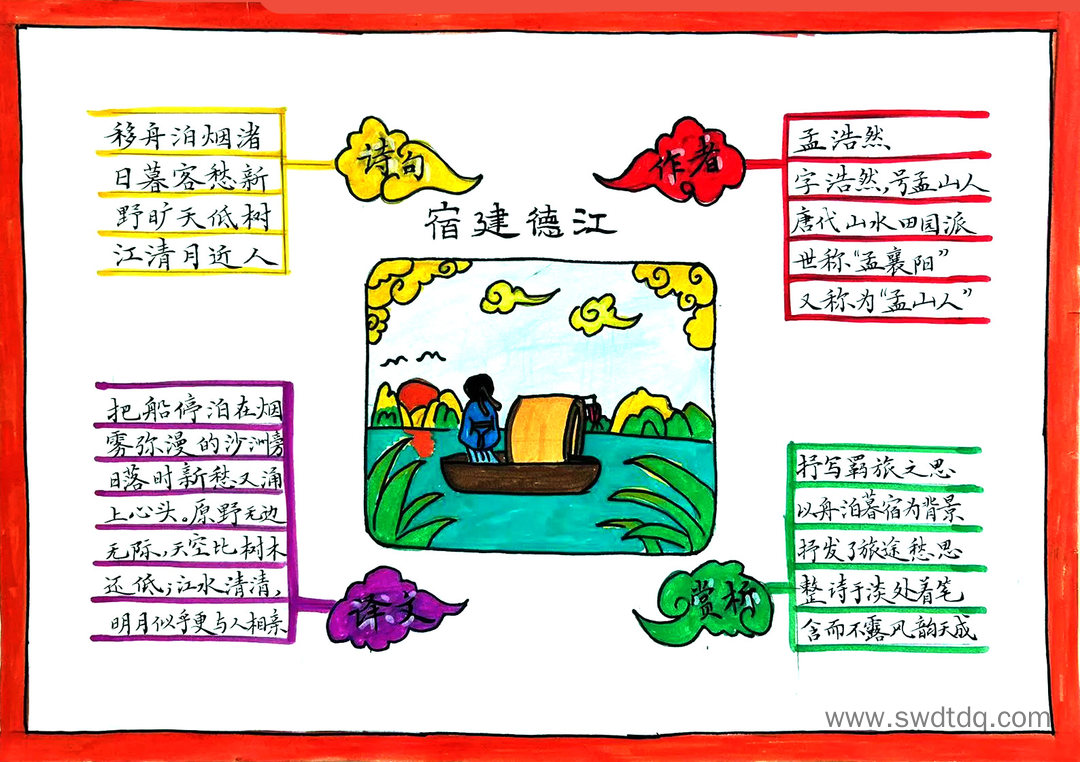 宿建德江
诗句
移舟泊烟渚
日暮客愁新
野旷天低树
江清月近人
作者
孟浩然
字浩然,号孟山人
唐代山水田园派
世称“孟襄阳”
又称为“孟山人”
译文
把船停泊在烟
雾弥漫的沙洲旁
日落时新愁又涌
上心头。原野无边
无际,天空比树木
还低;江水清清,
明月似乎更与人相亲
赏析
抒写羁旅之思
以舟泊暮宿为背景
抒发了旅途愁思
整诗于淡处着笔
含而不露风韵天成
www.swdtdq.com